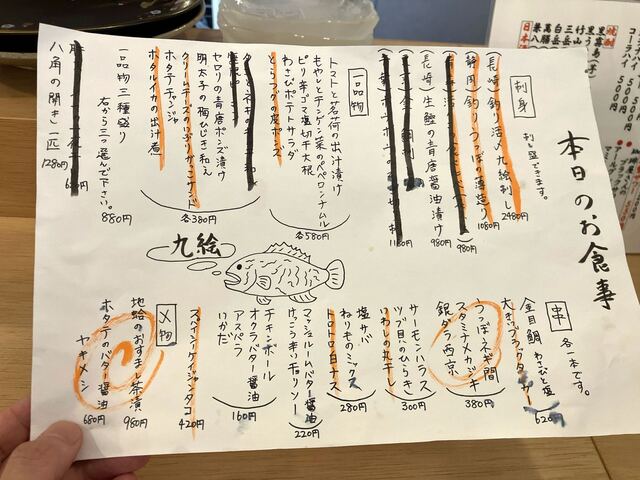 本日のお食事
刺身
刺し盛できます。
(長崎)釣り活〆九絵刺し 2980円
(静岡)釣りうつぼの薄造り 1080円
980円
(長崎)生鰹の青唐醤油漬け 980円
1180円
一品物
トマトと茗荷の出汁漬け
もやしとチンゲン菜のペペロンナムル
ピリ辛ゴマ塩切干大根
わさびポテトサラダ
とらフグの皮ポンズ
各580円
セロリの青唐ポンズ漬け
明太子の梅ひじき和え
クリームチーズのいぶりがっこサンド
ホタテチャンジャ
ホタルイカの出汁煮
各380円
一品物三種盛り
右から三つ選んで下さい。
880円
八角の開き一匹 1280円
九絵
串
各一本です。
金目鯛 わさびと塩
620円
うつぼネギ間
スタミナメカジキ
銀ダラ西京
380円
サーモンハラス
ツブ貝のひらき
いわしの丸干し
300円
塩サバ
ねりものミックス
トロトロ白ナス
280円
マッシュルームバター醤油
けっこう辛いチョリソー
220円
チキンボール
オクラバター醤油
アスパラ
いかだ
160円
スパイシーケイジャンタコ 420円
〆物
地蛤のおすまし茶漬 980円
ホタテのバター醤油ヤキメシ 680円